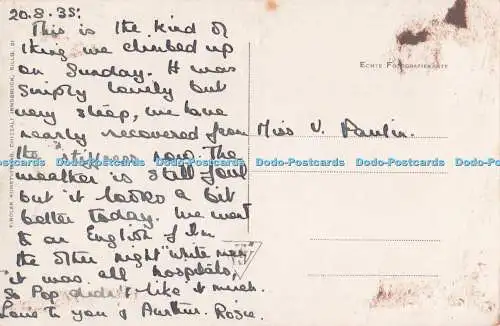 20.8.35.
This is the kind of
thing we climbed up
on Sunday. It was
simply lovely but
very steep, we have
nearly recovered from
the stiffness now. The
weather is still foul
but it looks a bit
better today. We went
to an English film
the other night "white man"
it was all hospitals,
so Pop didn't like it much.
Love to you & Auntie. Rosie.
Miss V. Paulin.
ECHTE FOTOGRAFIEKARTE
TIROLER KUNSTVERLAG CHIZZALI INNSBRUCK, SILLG. 21
Dodo-Postcards Dodo-Postcards Dodo-Postcards Dodo-Postcards Dodo-Postcards